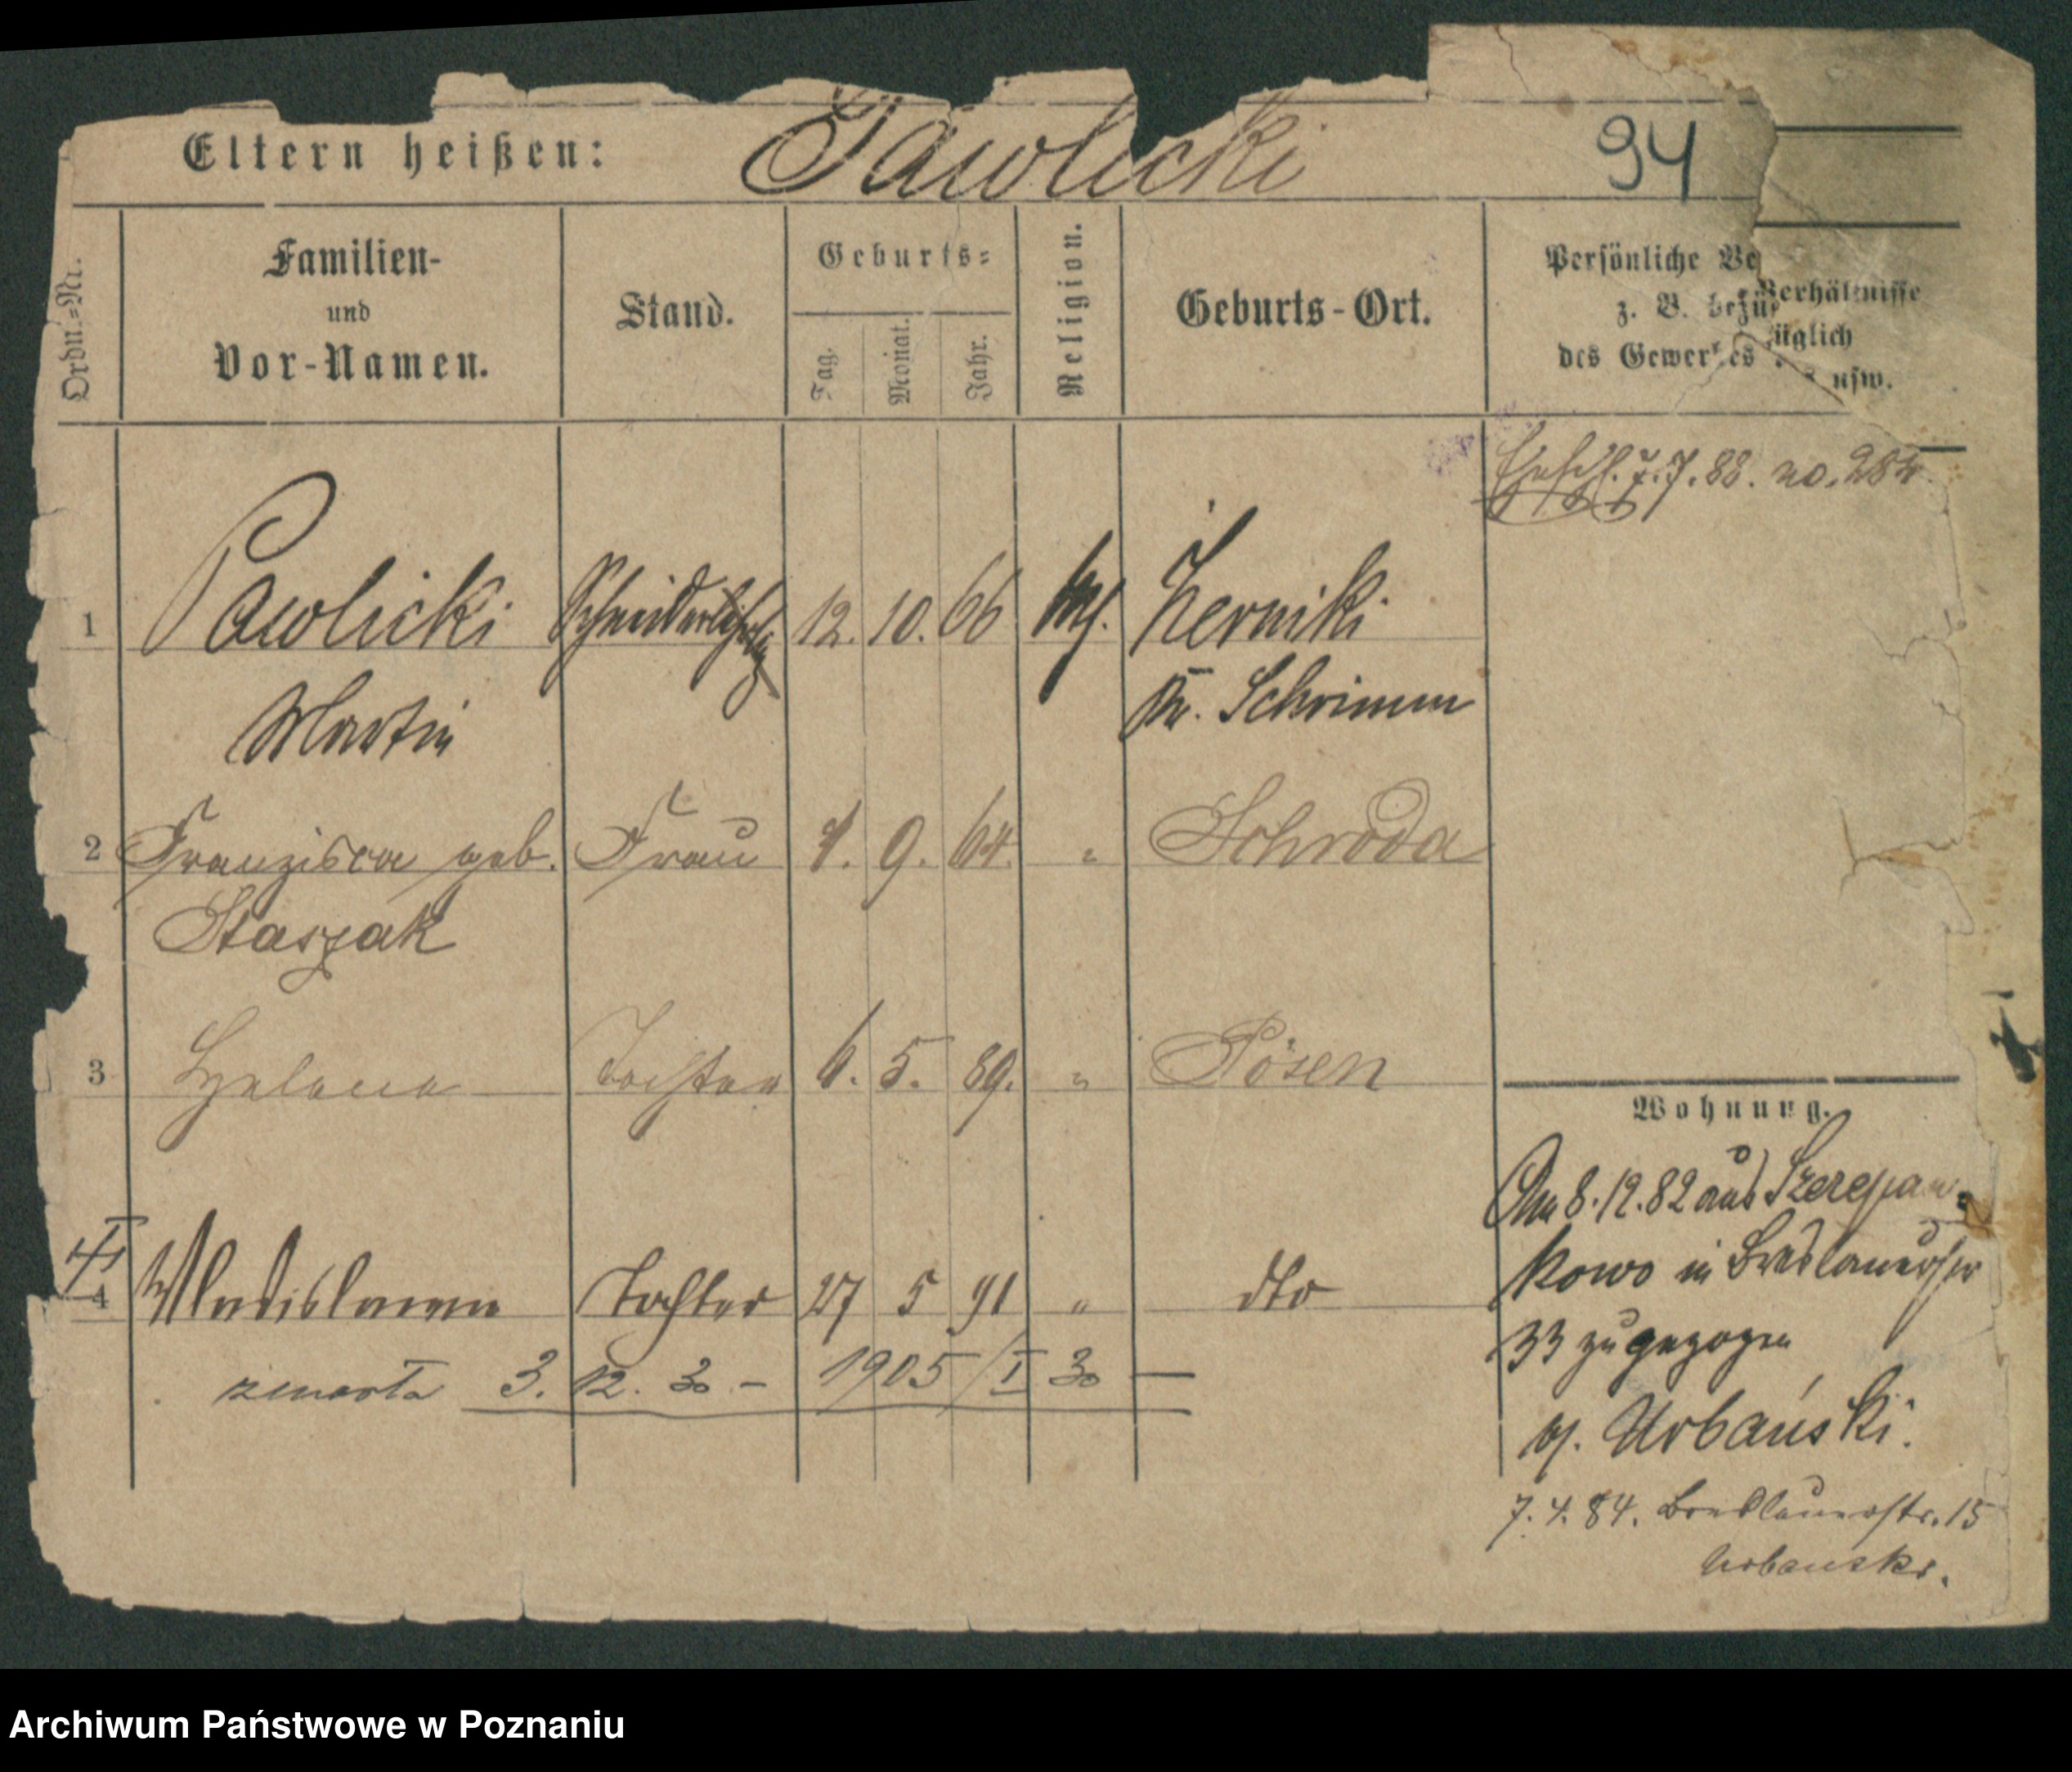 Eltern heißen: Pawlicki 94
Ordn.-Nr.
Familien-
und
Vor-Namen.
Stand.
Geburts-
Tag. Monat. Jahr.
Religion.
Geburts-Ort.
Persönliche Verhältnisse
z. B. bezüglich
des Gewerbes usw.
7.7.88. no. 284
1 Pawlicki Schneiderlehrling 12. 10. 66 kth. Żerniki
Martin Kr. Schrimm
2 Franzisca geb. Frau 1. 9. 64. " Schroda
Staszak
3 Helena Tochter 6. 5. 89. " Posen
4 Wladislawa Tochter 27 5 91 " dto
zmarła 3. 12. 30 – 1905/I 30 —
Wohnung.
Am 8.12.82 aus Szczepan-
kowo in Breslauerstr
33 zugezogen
bei Urbański.
7.4.84. Breslauerstr. 15
Urbanski.
Archiwum Państwowe w Poznaniu